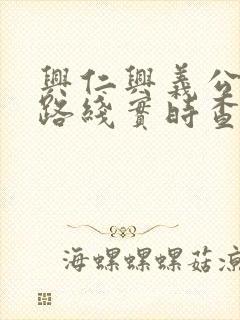 興仁興義公
路綫實時查
海螺螺螺菇涼